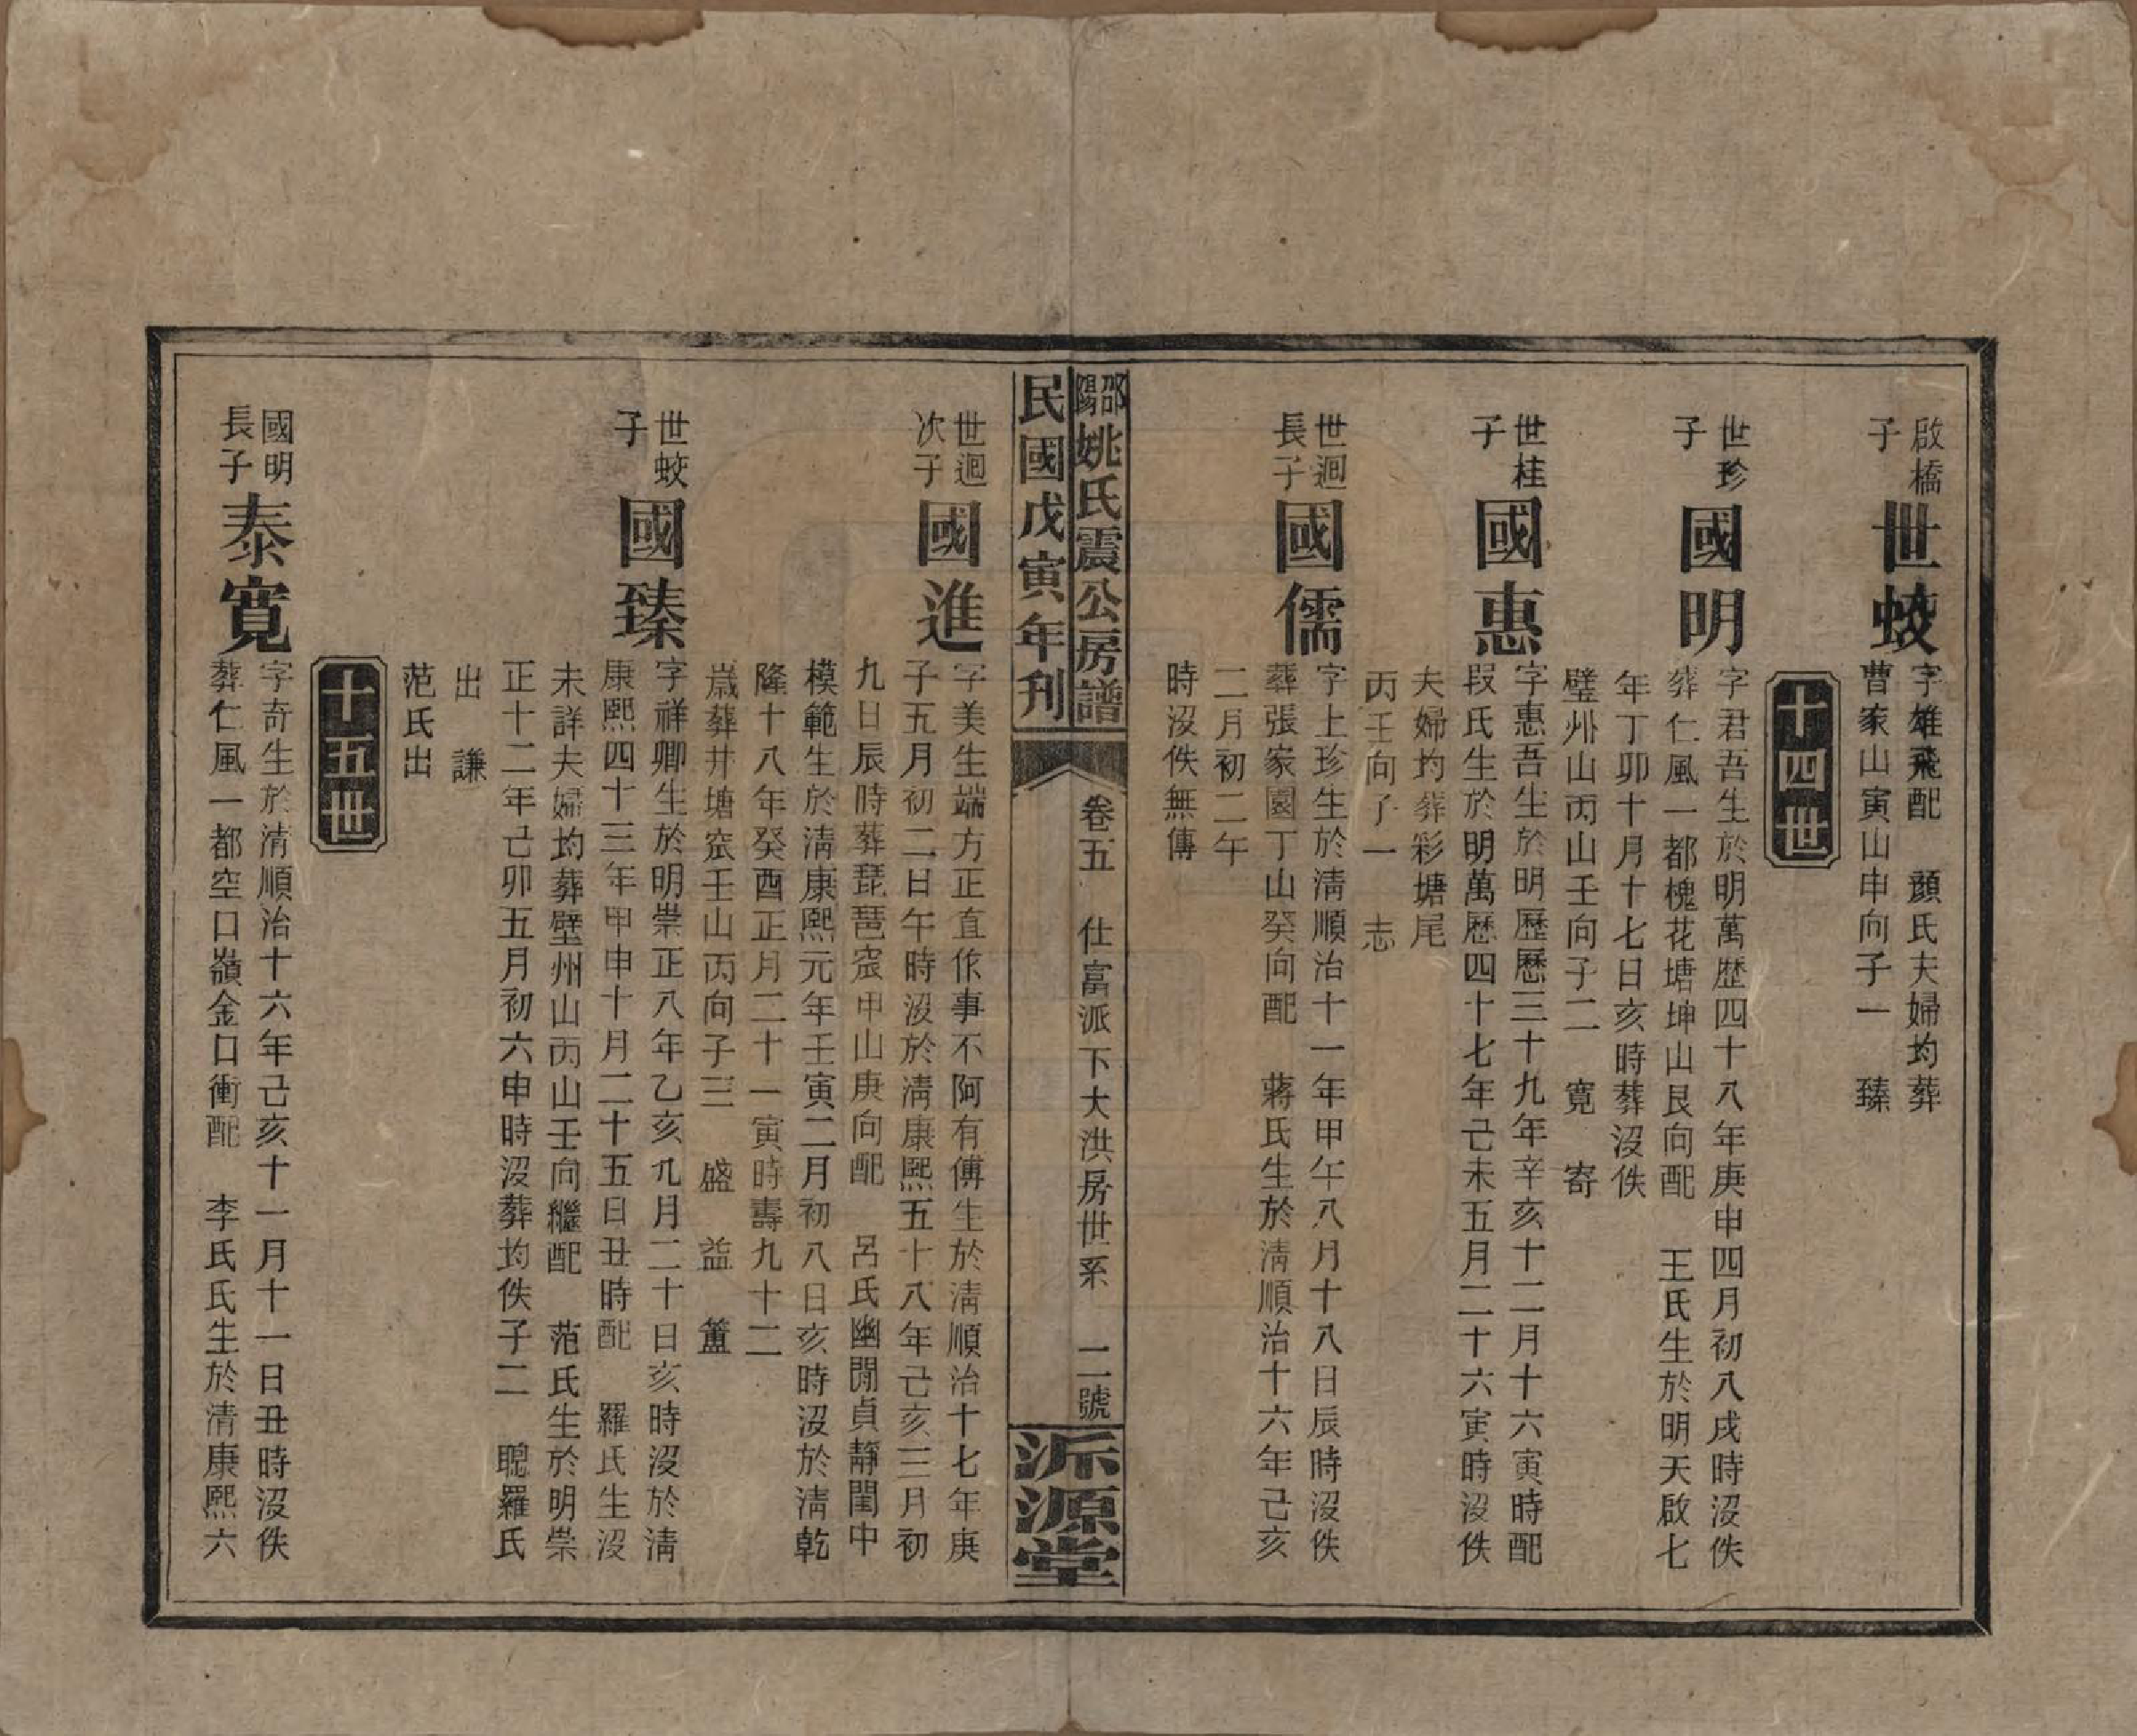 啟橋
子
世蛟
字雄飛配　顏氏夫婦均葬
曹家山寅山申向子一　臻
十四世
世珍
子
國明
字君吾生於明萬歷四十八年庚申四月初八戌時沒佚
葬仁風一都槐花塘坤山艮向配　王氏生於明天啟七
年丁卯十月十七日亥時葬沒佚
璧州山丙山壬向子二　寬　寄
世桂
子
國惠
字惠吾生於明歷歷三十九年辛亥十二月十六寅時配
段氏生於明萬歷四十七年己未五月二十六寅時沒佚
夫婦均葬彩塘尾
丙壬向子一　志
世迴
長子
國儒
字上珍生於淸順治十一年甲午八月十八日辰時沒佚
葬張家園丁山癸向配　蔣氏生於淸順治十六年己亥
二月初二午
時沒佚無傳
邵陽姚氏震公房譜
民國戊寅年刋
卷五　仕富派下大洪房世系　二號
派源堂
世迴
次子
國進
字美生端方正直作事不阿有傳生於淸順治十七年庚
子五月初二日午時沒於淸康熙五十八年己亥三月初
九日辰時葬琵琶窊甲山庚向配　呂氏幽閒貞靜閨中
模範生於淸康熙元年壬寅二月初八日亥時沒於淸乾
隆十八年癸酉正月二十一寅時壽九十二
歲葬井塘窊壬山丙向子三　盛　益　簠
世蛟
子
國臻
字祥卿生於明崇正八年乙亥九月二十日亥時沒於淸
康熙四十三年甲申十月二十五日丑時配　羅氏生沒
未詳夫婦均葬壁州山丙山壬向繼配　范氏生於明崇
正十二年己卯五月初六申時沒葬均佚子二　聰羅氏
出　謙
范氏出
十五世
國明
長子
泰寬
字奇生於清順治十六年己亥十一月十一日丑時沒佚
葬仁風一都空口嶺金口衝配　李氏氏生於清康熙六